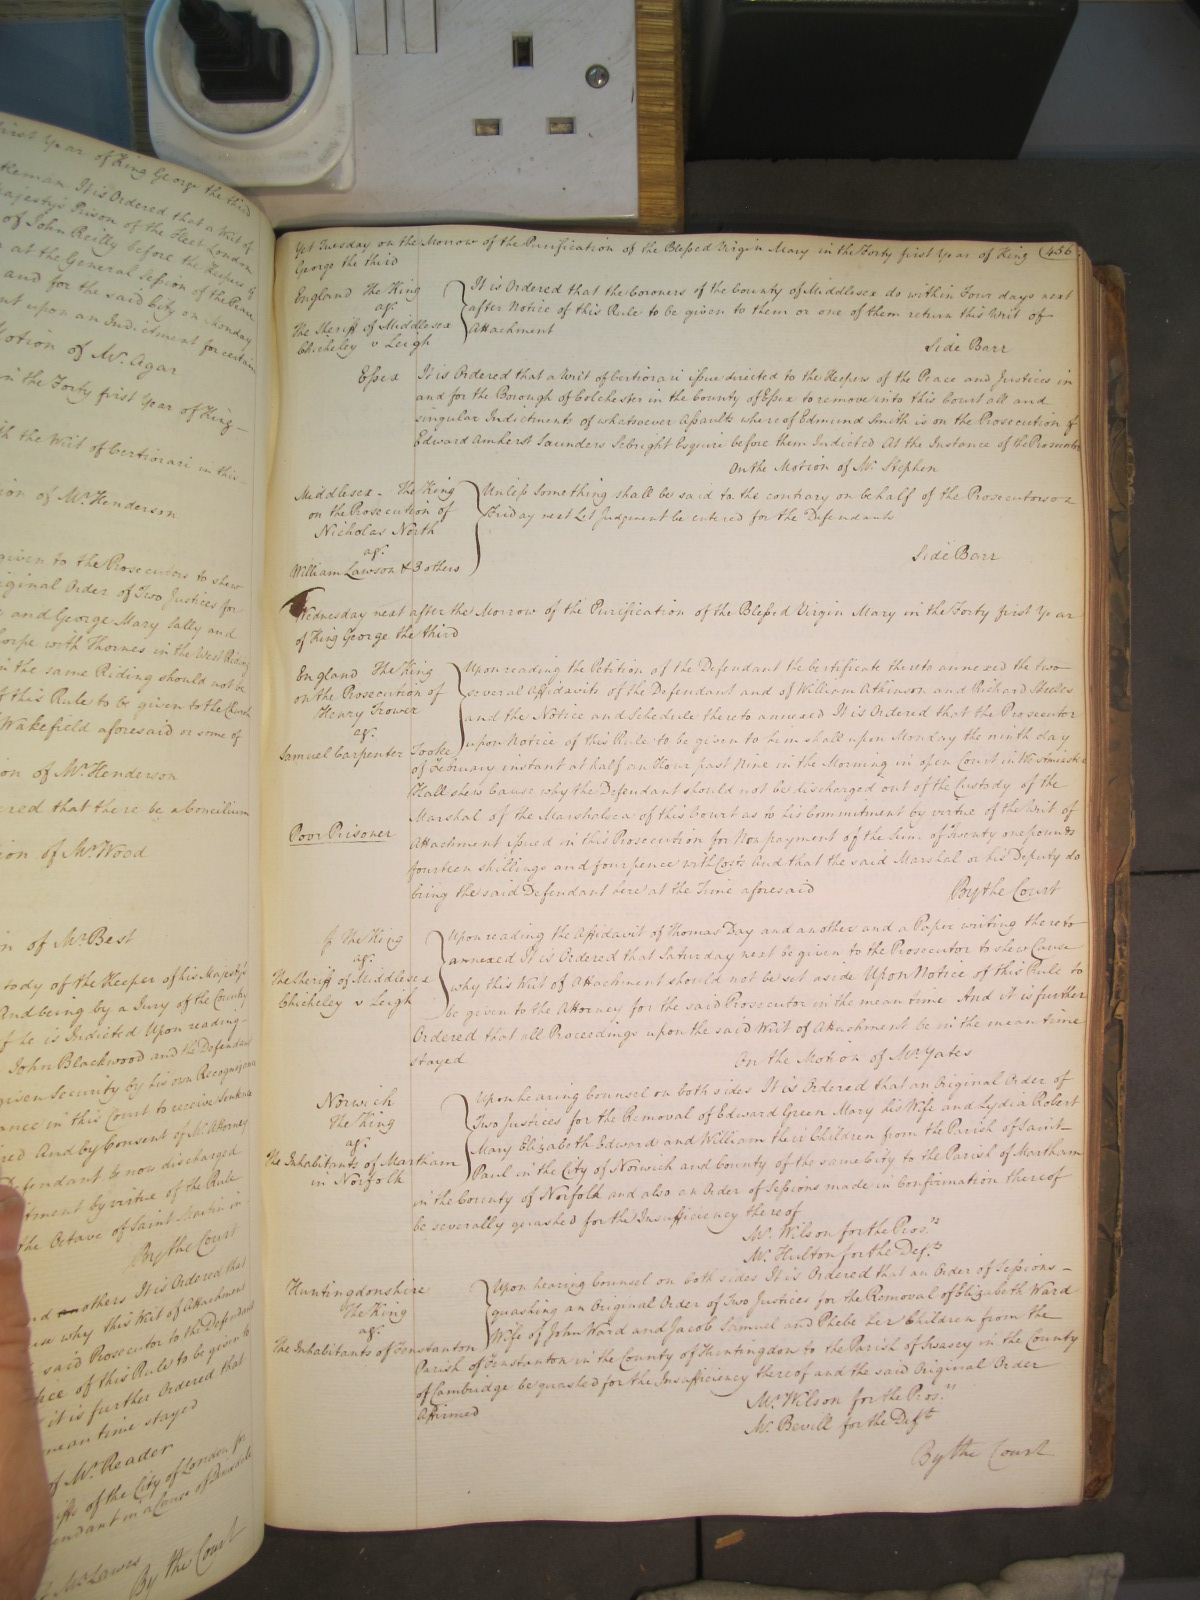 first Year of King George the third
tleman It is Ordered that a Writ of
Majesty's Prison of the Fleet London
of John Reilly before the Keepers of
at the General Session of the Peace
and for the said City on Monday
upon an Indictment for certain
Motion of Mr. Agar
in the Forty first Year of King
the Writ of Certiorari in this
ion of Mr Henderson
given to the Prosecutors to shew
iginal Order of Two Justices for
and George Mary Sally and
orpe with Thornes in the West Riding
in the same Riding should not be
f this Rule to be given to the Church
Wakefield aforesaid or some of
ion of Mr Henderson
ered that there be a Concilium
ion of Mr Wood
n of Mr Best
tody of the Keeper of his Majestys
And being by a Jury of the County
f he is Indicted Upon reading
John Blackwood and the Defendant
given Security by his own Recognizance
ance in this Court to receive Sentence
red And by Consent of Mr Attorney
Defendant be now discharged
tment by virtue of the Rule
the Octave of Saint Martin in
By the Court
nd others It is Ordered that
use why this Writ of Attachment
said Prosecutor to the Defendant
tice of this Rule to be given to
it is further Ordered that
mean time stayed
of Mr Reader
iffs of the City of London
endant in a Cause of
Mr Lawes
By the Court
Yet Tuesday on the Morrow of the Purification of the Blessed Virgin Mary in the Forty first Year of King 456
George the third
England The King
agt.
The Sheriff of Middlesex
Chicheley v Leigh
It is Ordered that the Coroners of the County of Middlesex do within Four days next
after Notice of this Rule to be given to them or one of them return this Writ of
Attachment
Side Barr
Essex It is Ordered that a Writ of Certiorari issue directed to the Keepers of the Peace and Justices in
and for the Borough of Colchester in the County of Essex to remove into this Court all and
singular Indictments of whatsoever Assaults whereof Edmund Smith is on the Prosecution of
Edward Amherst Saunders Sebright Esquire before them Indicted At the Instance of the Prosecutor
On the Motion of Mr. Stephen
Middlesex - The King
on the Prosecution of
Nicholas North
agt.
William Lawson & 3 others
Unless something shall be said to the contrary on behalf of the Prosecutors on
Friday next Let Judgment be entered for the Defendants
Side Barr
Wednesday next after the Morrow of the Purification of the Blessed Virgin Mary in the Forty first Year
of King George the third
England The King
on the Prosecution of
Henry Trower
agt.
Samuel Carpenter Tooke
Poor Prisoner
Upon reading the Petition of the Defendant the Certificate thereto annexed the two
several Affidavits of the Defendant and of William Atkinson and Richard Steeles
and the Notice and Schedule thereto annexed It is Ordered that the Prosecutor
upon Notice of this Rule to be given to him shall upon Monday the ninth day
of February instant at half an Hour past Nine in the Morning in open Court in Westminster
Hall shew Cause why the Defendant should not be discharged out of the Custody of the
Marshal of the Marshalsea of this Court as to his Commitment by virtue of the Writ of
Attachment issued in this Prosecution for Non payment of the Sum of Twenty one pounds
fourteen shillings and four pence with Costs And that the said Marshal or his Deputy do
bring the said Defendant here at the Time aforesaid By the Court
The King
agt.
The Sheriff of Middlesex
Chicheley v Leigh
Upon reading the Affidavit of Thomas Day and another and a Paper writing thereto
annexed It is Ordered that Saturday next be given to the Prosecutor to shew Cause
why this Writ of Attachment should not be set aside Upon Notice of this Rule to
be given to the Attorney for the said Prosecutor in the mean time And it is further
Ordered that all Proceedings upon the said Writ of Attachment be in the mean time
stayed On the Motion of Mr Yates
Norwich
The King
agt.
The Inhabitants of Martham
in Norfolk
Upon hearing Counsel on both sides It is Ordered that an Original Order of
Two Justices for the Removal of Edward Green Mary his Wife and Lydia Robert
Mary Elizabeth Edward and William their Children from the Parish of Saint
Paul in the City of Norwich and County of the same City to the Parish of Martham
in the County of Norfolk and also an Order of Sessions made in Confirmation thereof
be severally quashed for the Insufficiency thereof
Mr. Wilson for the Pros.rs
Mr. Hulton for the Def.ts
Huntingdonshire
The King
agt.
The Inhabitants of Fenstanton
Upon hearing Counsel on both sides It is Ordered that an Order of Sessions
quashing an Original Order of Two Justices for the Removal of Elizabeth Ward
Wife of John Ward and Jacob Samuel and Phebe her Children from the
Parish of Fenstanton in the County of Huntingdon to the Parish of Swavesey in the County
of Cambridge be quashed for the Insufficiency thereof and the said Original Order
Affirmed
Mr. Wilson for the Pros.rs
Mr. Bevill for the Def.ts
By the Court